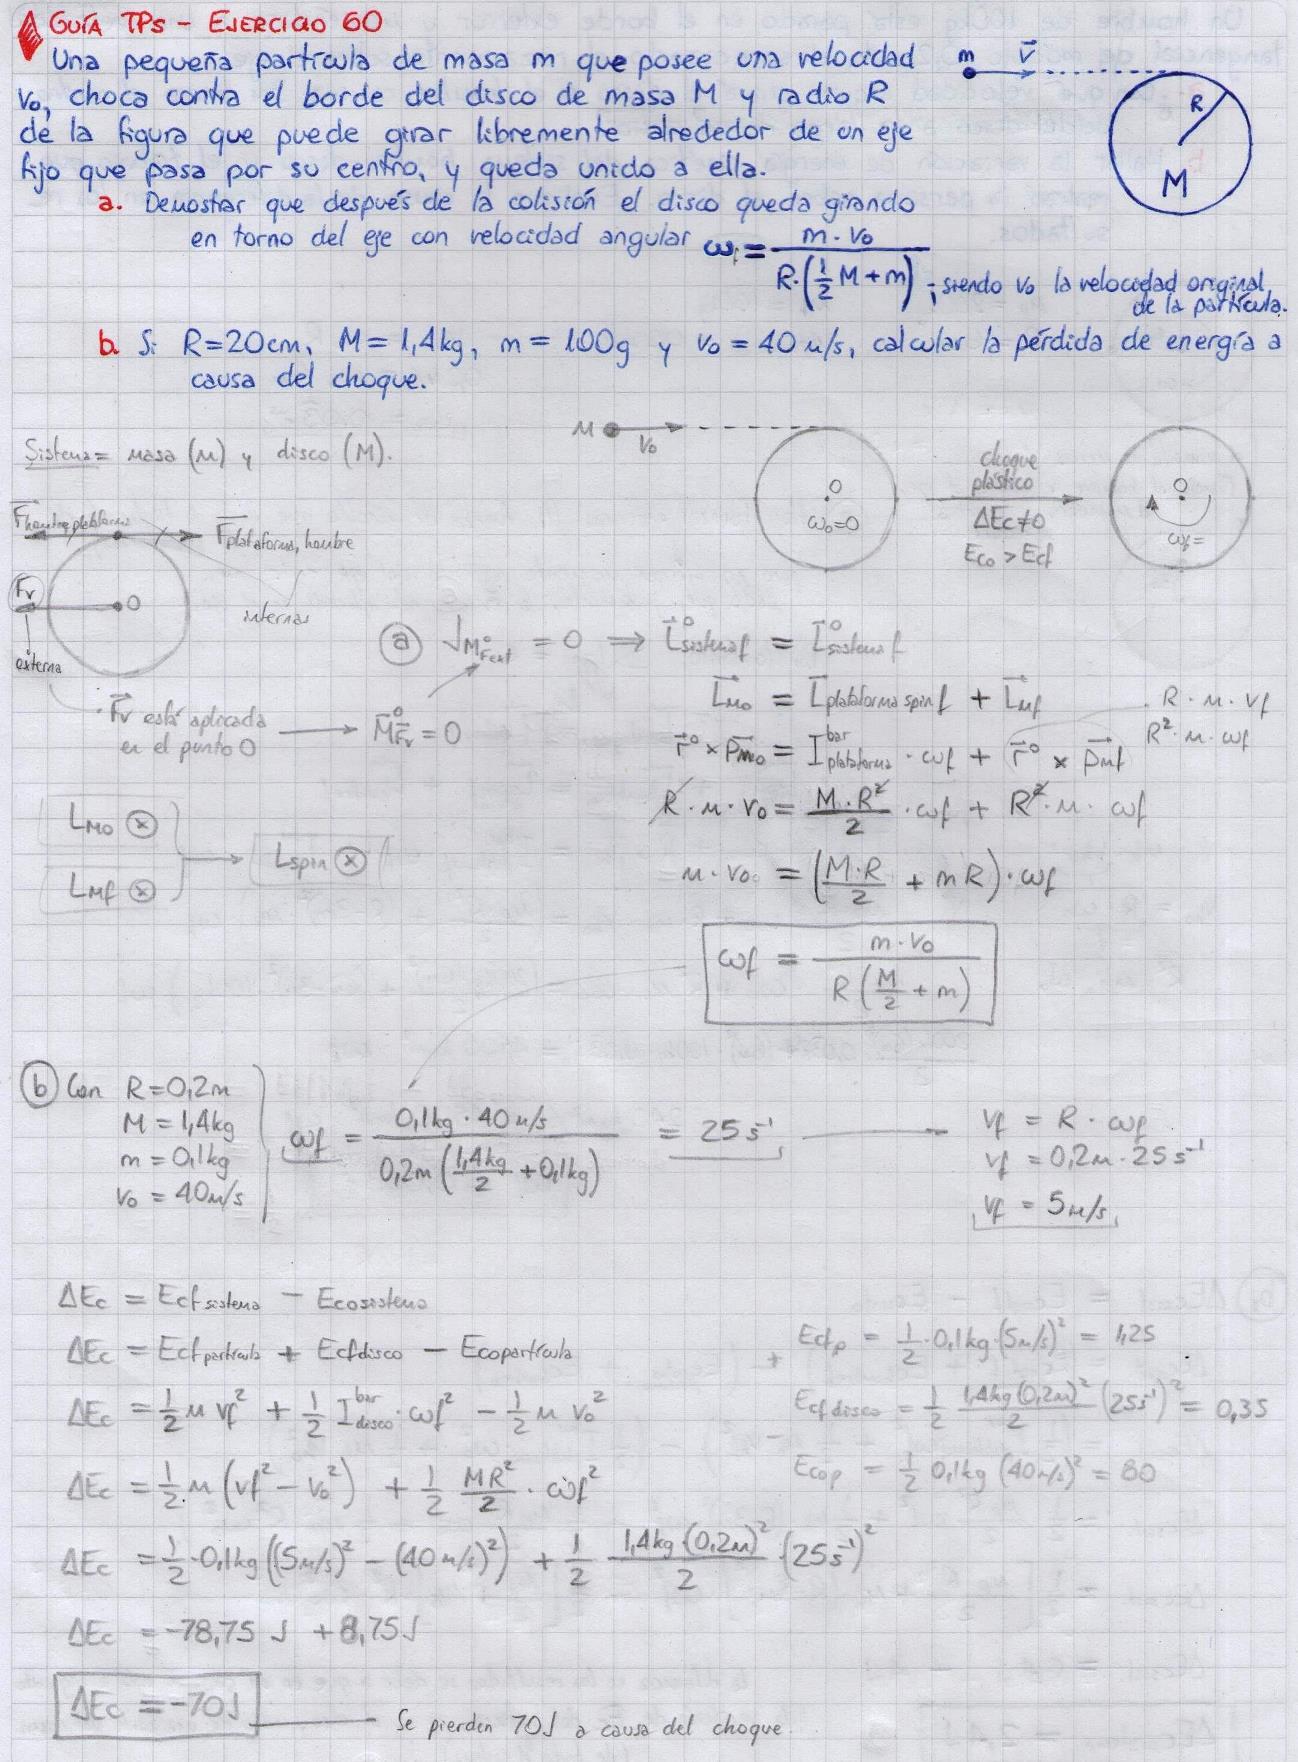 GUÍA TPs - EJERCICIO 60
Una pequeña partícula de masa m que posee una velocidad
v₀, choca contra el borde del disco de masa M y radio R
de la figura que puede girar libremente alrededor de un eje
fijo que pasa por su centro, y queda unido a ella.
m v⃗
R
M
a. Demostrar que después de la colisión el disco queda girando
en torno del eje con velocidad angular ωf = m·v₀ / R·(1/2 M + m) ; siendo v₀ la velocidad original
de la partícula.
b. Si R=20cm, M=1,4kg, m=100g y v₀=40m/s, calcular la pérdida de energía a
causa del choque.
Sistema= masa (m) y disco (M).
m v₀
O
ω₀=0
choque
plástico
ΔEc≠0
Eco > Ecf
O
ωf=
F⃗hombre,plataforma
F⃗plataforma,hombre
Fv
O
internas
externa
F⃗v está aplicada
en el punto O
M⃗°F⃗v = 0
(a) J M°Fext = 0 ⟹ L⃗°sistema f = L⃗°sistema f
L⃗mo = L⃗plataforma spin f + L⃗mf
R·m·vf
R²·m·ωf
r⃗° × p⃗mo = I bar plataforma · ωf + r⃗° × p⃗mf
R·m·v₀ = M·R²/2 · ωf + R²·m·ωf
Lmo ⊗
Lmf ⊗
Lspin ⊗
m·v₀ = (M·R/2 + mR)·ωf
ωf = m·v₀ / R(M/2 + m)
(b) Con R=0,2m
M=1,4kg
m=0,1kg
v₀=40m/s
ωf = 0,1kg·40m/s / 0,2m(1,4kg/2 + 0,1kg) = 25s⁻¹
vf = R·ωf
vf = 0,2m·25s⁻¹
vf = 5m/s
ΔEc = Ecf sistema - Eco sistema
ΔEc = Ecf partícula + Ecf disco - Eco partícula
ΔEc = 1/2 m vf² + 1/2 I bar disco · ωf² - 1/2 m v₀²
ΔEc = 1/2 m (vf² - v₀²) + 1/2 MR²/2 · ωf²
ΔEc = 1/2·0,1kg((5m/s)² - (40m/s)²) + 1/2 1,4kg·(0,2m)²/2 ·(25s⁻¹)²
ΔEc = -78,75 J + 8,75J
ΔEc = -70J
Se pierden 70J a causa del choque.
Ecfp = 1/2·0,1kg·(5m/s)² = 1,25
+
Ecf disco = 1/2 1,4kg(0,2m)²/2 (25s⁻¹)² = 0,35
-
Ecop = 1/2 0,1kg (40m/s)² = 80